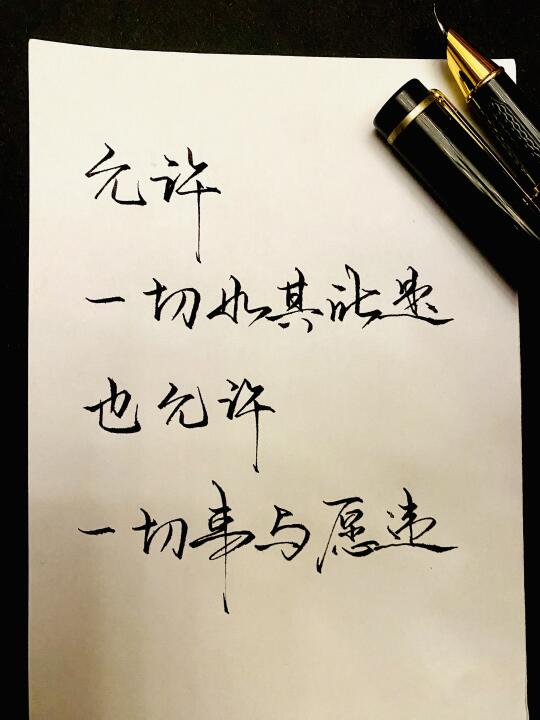 允许
一切如其所是
也允许
一切事与愿违